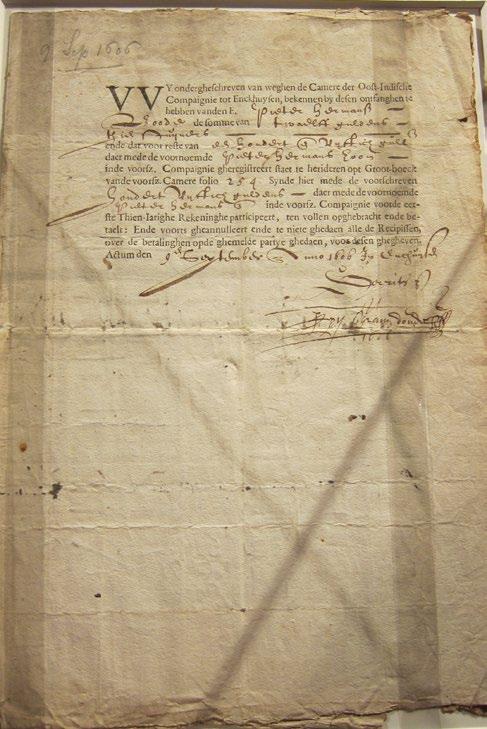 9 Sep 1606
VVY ondergheschreven van weghen de Camere der Oost-Indische
Compaignie tot Enckhuysen, bekennen by desen ontfanghen te
hebben vanden E. Pieter Hermansz
de somme van twaelff guldens
ende dat voor reste van een hondert Vyftich guld
daer mede de voornoemde Pieter Hermans zoon
inde voorsz. Compaignie gheregistreert staet te heridren opt Groot-boeck
vande voorsz. Camere folio 254. Synde hier mede de voorschreven
hondert Vyftich guldens daer mede de voornoemde
Pieter Hermans inde voorsz. Compaignie voorde eer-
ste Thien-Iarighe Rekeninghe participeert, ten vollen opghebracht ende be-
taelt: Ende voorts gheannulleert ende te niete ghedaen alle de Recipissen,
over de betalinghen opde ghemelde partye ghedaen, voor desen ghegheven.
Actum den 9e September Anno 1606